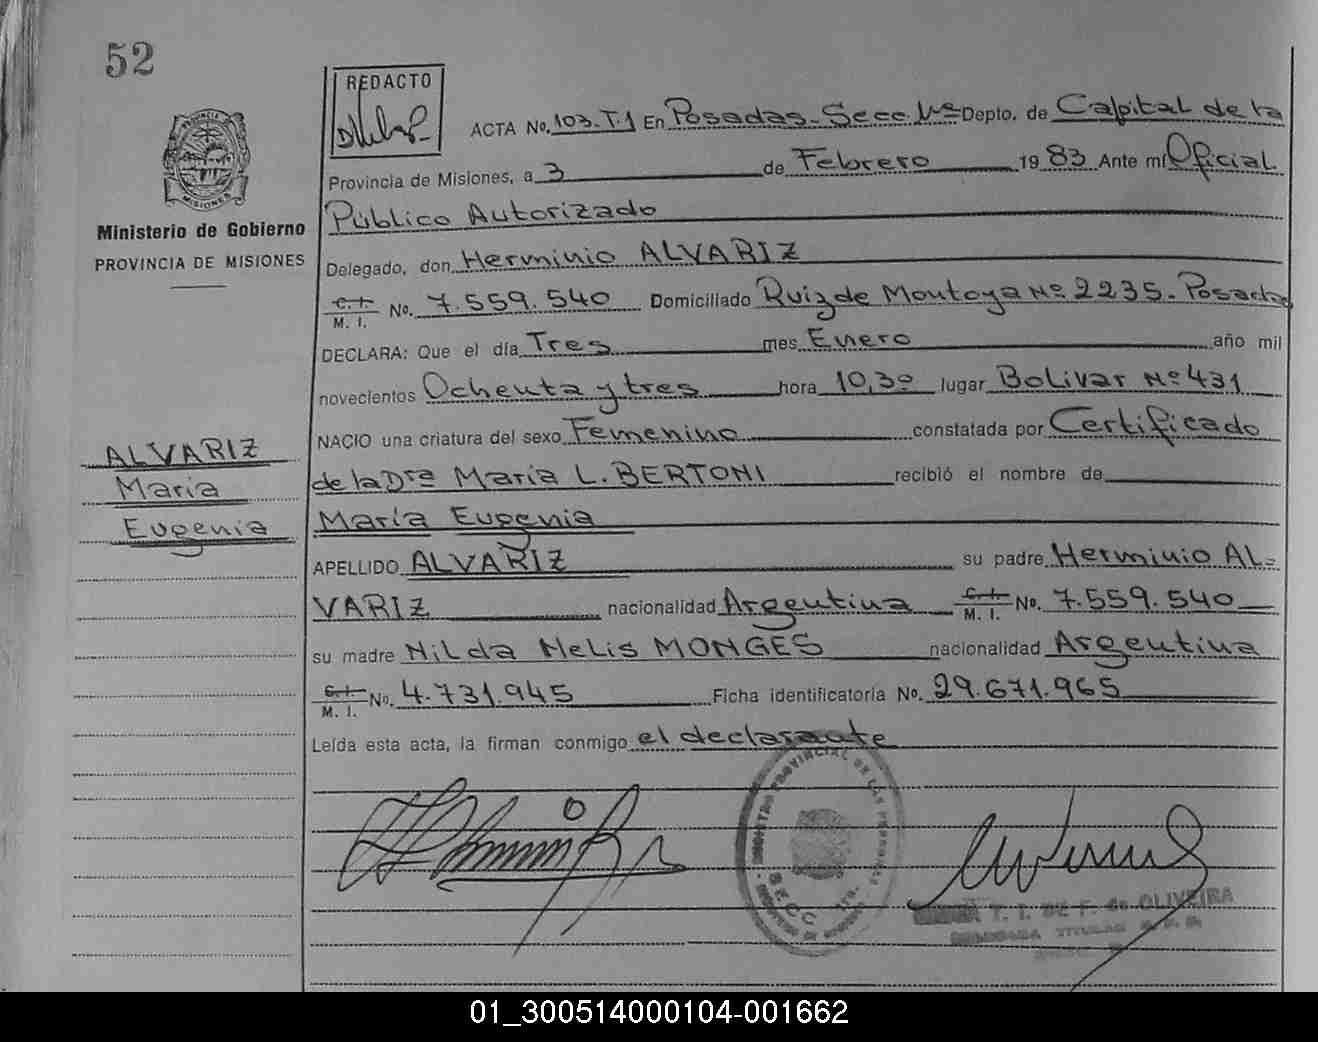 52
REDACTO
ACTA No. 103. T.1 En Posadas. Secc. 1ra Depto. de Capital de la
Provincia de Misiones, a 3 de Febrero 19 83 Ante mí Oficial
Público Autorizado
Delegado, don Herminio ALVARIZ
C. I. M. I. No. 7.559.540 Domiciliado Ruiz de Montoya Nº 2235. Posadas
DECLARA: Que el día Tres mes Enero año mil
novecientos Ochenta y tres hora 10,30 lugar Bolivar Nº 431
NACIO una criatura del sexo Femenino constatada por Certificado
de la Dra María L. BERTONI recibió el nombre de
María Eugenia
APELLIDO ALVARIZ su padre Herminio AL-
VARIZ nacionalidad Argentina C. I. M. I. No. 7.559.540
su madre Nilda Nelis MONGES nacionalidad Argentina
C. I. M. I. No. 4.731.945 Ficha identificatoria No. 29.671.965
Leída esta acta, la firman conmigo el declarante
PROVINCIA
MISIONES
Ministerio de Gobierno
PROVINCIA DE MISIONES
ALVARIZ
María
Eugenia
REGISTRO PROVINCIAL DE LAS PERSONAS
SECC. 1ra.
T. I. DE F. de OLIVEIRA
TITULAR
01_300514000104-001662